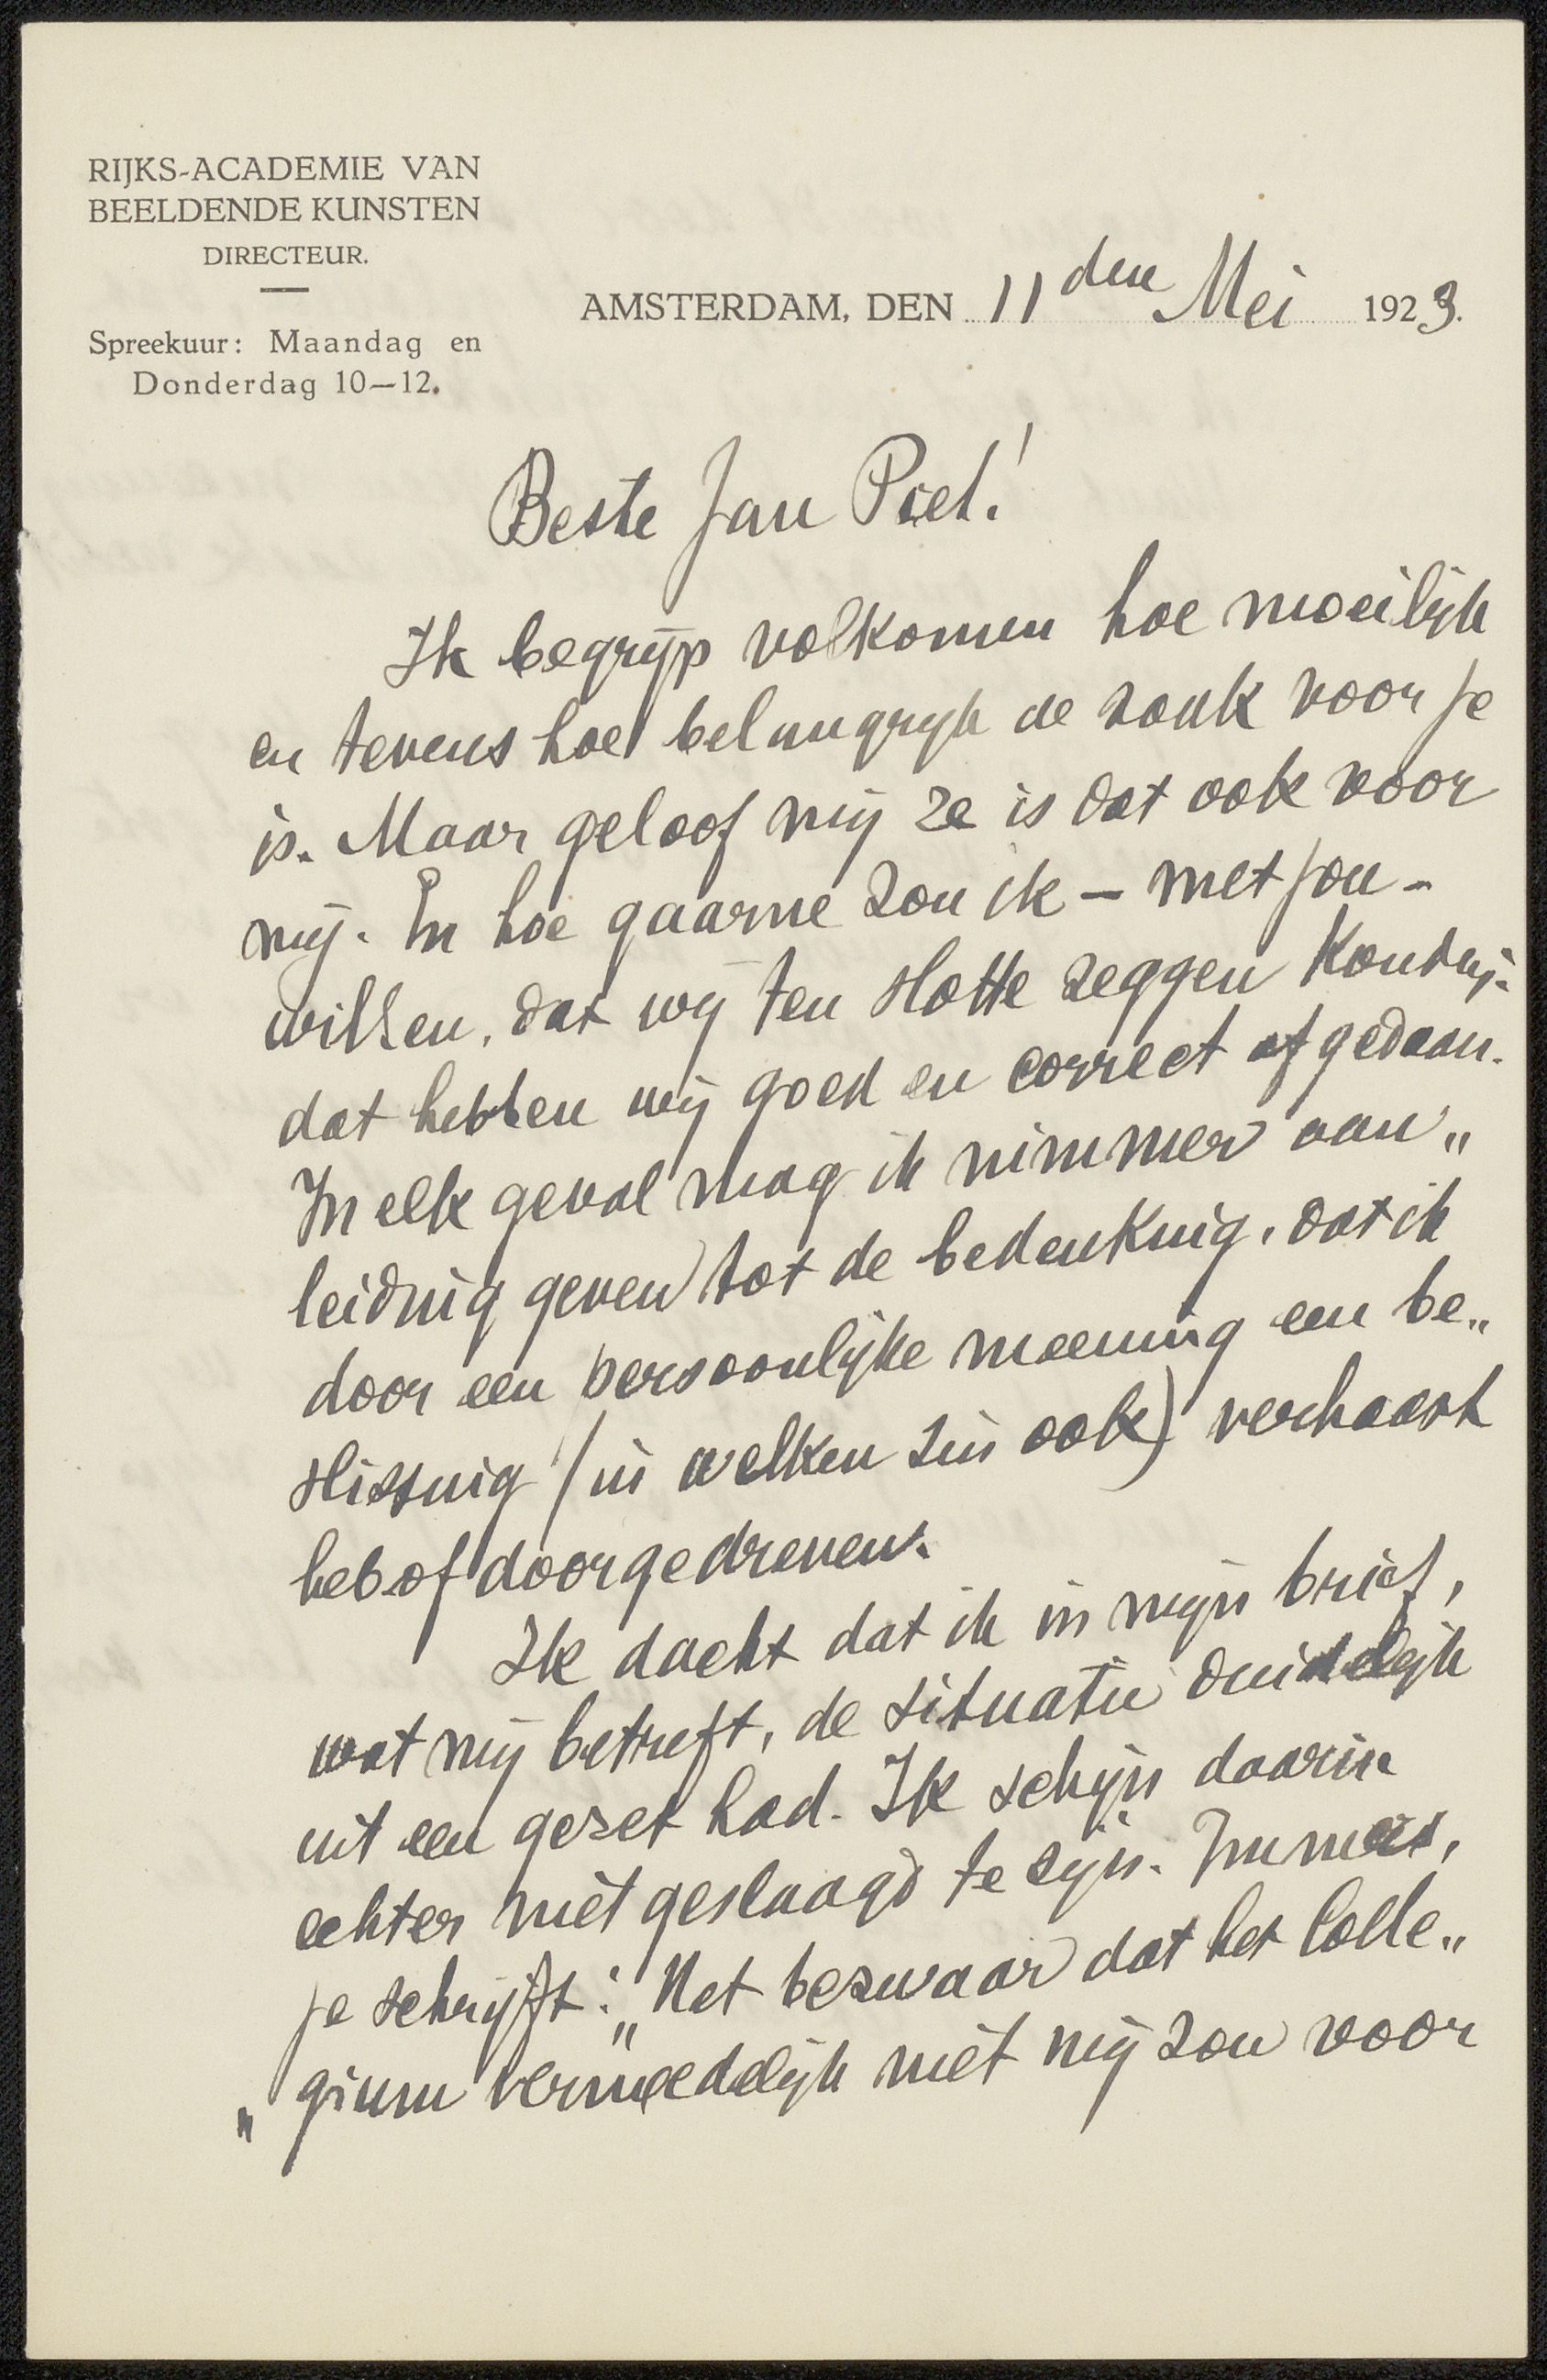 RIJKS-ACADEMIE VAN
BEELDENDE KUNSTEN
DIRECTEUR.
Spreekuur: Maandag en
Donderdag 10—12.
AMSTERDAM, DEN 11den Mei 1923.
Beste Jan Piet!
Ik begrijp volkomen hoe moeilijk
en tevens hoe belangrijk de zaak voor je
is. Maar geloof mij ze is dat ook voor
mij. En hoe gaarne zou ik – met jou –
willen, dat wij ten slotte zeggen konden:
dat hebben wij goed en correct afgedaan.
In elk geval mag ik nimmer aan„
leiding geven tot de bedenking, dat ik
door een persoonlijke meening een be„
slissing (in welken zin ook) verhaast
heb of doorgedreven.
Ik dacht dat ik in mijn brief,
wat mij betreft, de situatie duidelijk
uit een gezet had. Ik schijn daarin
echter niet geslaagd te zijn. Immers,
je schrijft: „Het bezwaar dat het Colle„
„gium vermoedelijk niet mij zou voor